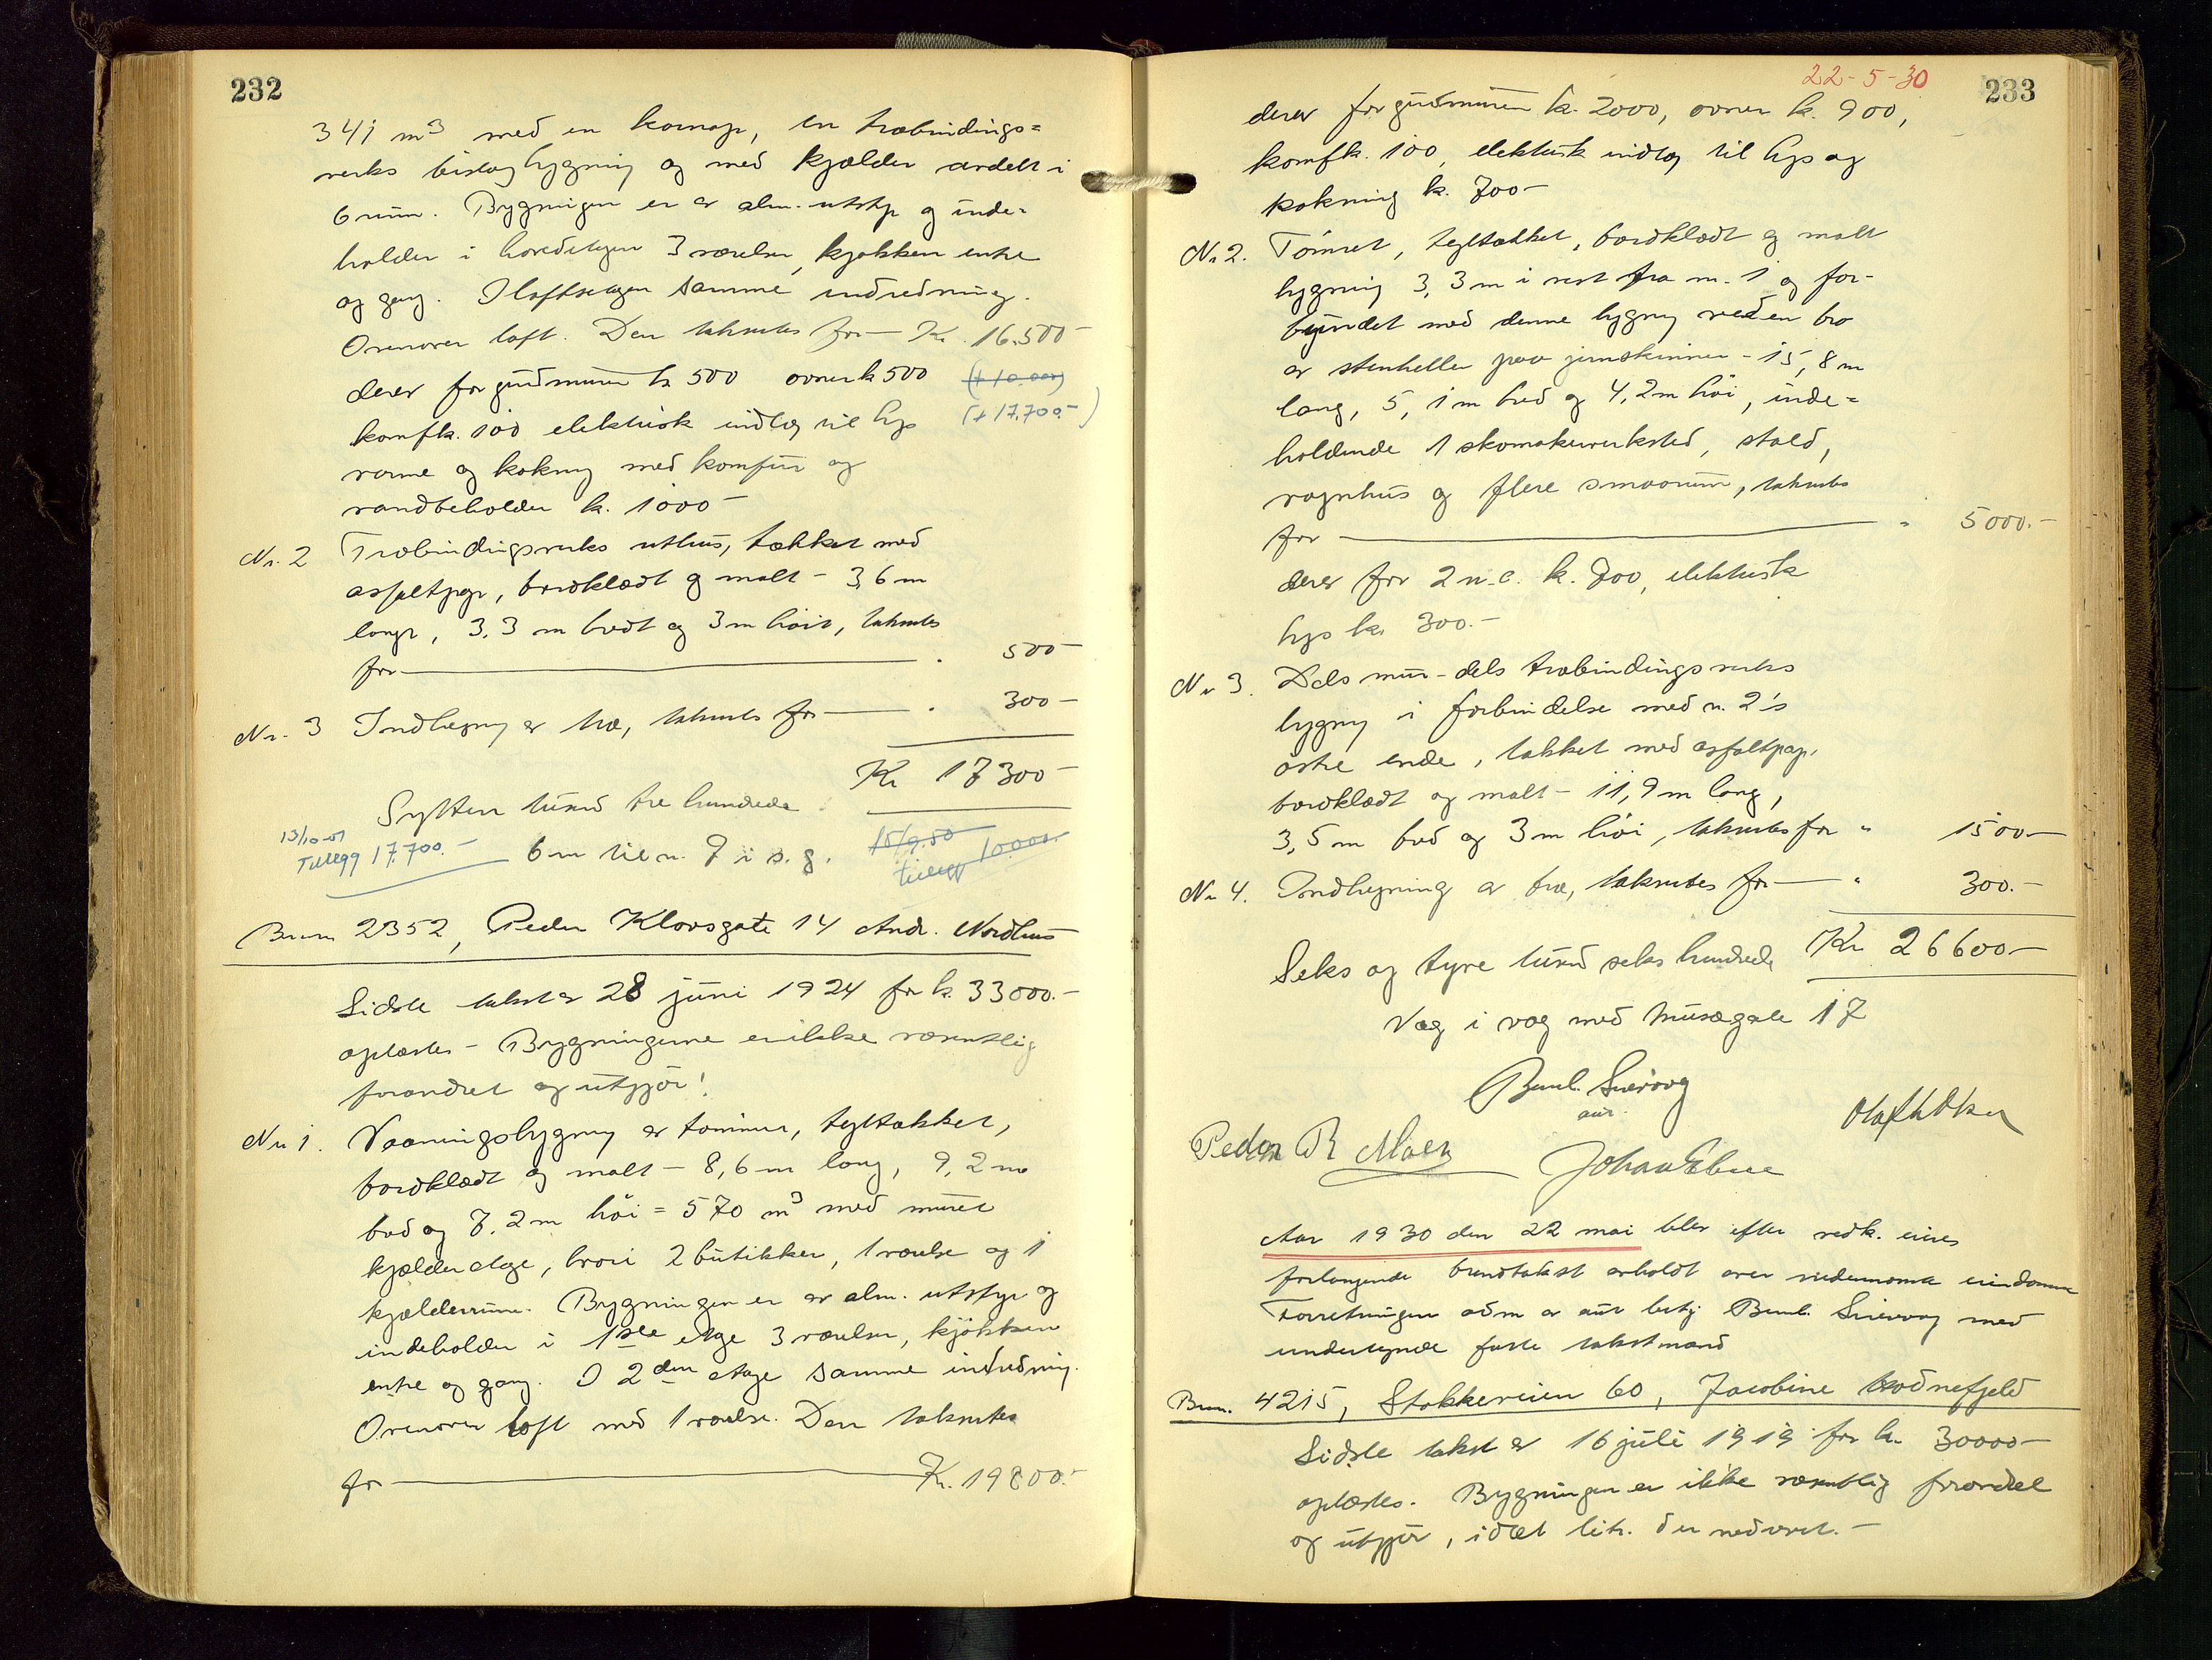 232
341 m³ med en karnap, en træbindings=
verks bislagbygning og med kjælder avdelt i
6 rum. Bygningen er av alm. utstyr og inde=
holder i hovedetagen 3 værelser, kjøkken entre
og gang. I loftsetagen samme indredning.
Ovenover loft. Den takseres for — Kr. 16.500 –
derav for grundmuren k 500 ovner k 500 (+ 10.000)
komf k. 100 elektrisk indlæg til lys (+ 17.700.-)
varme og kokning med komfur og
vandbeholder k. 1000 –
Nr. 2 Træbindingsverks uthus, tækket med
asfaltpap, bordklædt og malt – 3,6 m
langt, 3,3 m bredt og 3 m høit, takseres
for — " 500 –
Nr. 3 Indhegning av træ, takseres for — " 300 –
Kr 17300 –
Sytten tusind tre hundrede
13/10-51
Tillegg 17.700.- 6 m til n. 9 i s. g. 15/9.50 tillegg 10.000-
Brnr. 2352, Peder Klovsgate 14 Andr. Nordhus
Sidste takst av 28 juni 1924 for k. 33000.-
oplæstes – Bygningerne er ikke væsentlig
forandret og utgjør!
Nr 1. Vaaningsbygning av tømmer, tegltækket,
bordklædt og malt – 8,6 m lang, 9,2 m
bred og 7,2 m høi = 570 m³ med muret
kjælderetage, hvori 2 butikker, 1 værelse og 1
kjælderrum. Bygningen er av alm. utstyr og
indeholder i 1ste etage 3 værelser, kjøkken
entre og gang. I 2den etage samme indredning.
Ovenover loft med 1 værelse. Den takseres
for — Kr. 19800.-
22-5-30
233
derav for grundmuren k. 2000, ovner k. 900,
komf k. 100, elektrisk indlæg til lys og
kokning k. 700 –
Nr 2. Tømret, tegltækket, bordklædt og malt
bygning 3,3 m i vest fra nr. 1 og for-
bundet med denne bygning ved en bro
av stenheller paa jernskinner – 15,8 m
lang, 5,1 m bred og 4,2 m høi, inde=
holdende 1 skomakerverksted, stald,
vognhus og flere smaarum, takseres
for — " 5000.-
derav for 2 n.c. k. 700, elektrisk
lys kr. 300.-
Nr 3. Dels mur- dels træbindingsverks
bygning i forbindelse med n. 2's
østre ende, tækket med asfaltpap,
bordklædt og malt – 11,9 m lang,
3,5 m bred og 3 m høi, takseres for " 1500.-
Nr 4. Indhegning av træ, takseres for — " 300.-
Kr 26600 –
Seks og tyve tusind seks hundrede
Væg i væg med Musægate 17
Bernh. Snevaag
aut.
Olaf
Peder B Moen Johan
Aar 1930 den 22 mai blev efter vedk. eieres
forlangende brandtakst avholdt over nedennævnte eiendomme
Forretningen adm av aut betj. Bernh. Snevaag med
undertegnede faste takstmænd
Brnr. 4215, Stokkeveien 60, Jacobine Hodnefjeld
Sidste takst av 16 juli 1919 for k. 30000 –
oplæstes. Bygningen er ikke væsentlig forandret
og utgjør, idet litr. d er nedrevet. –